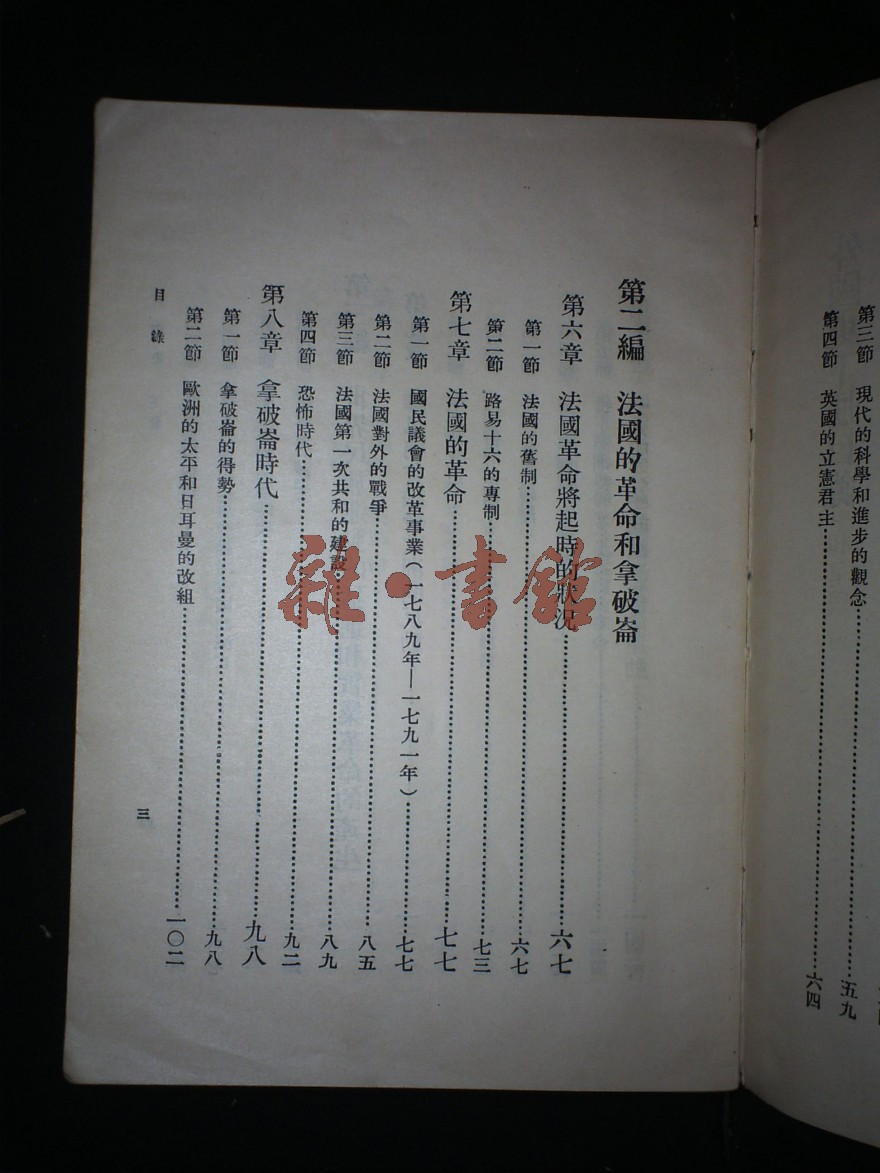 第三節　現代的科學和進步的觀念……五九
第四節　英國的立憲君主……六四
第二編　法國的革命和拿破崙
第六章　法國革命將起時的狀況……六七
第一節　法國的舊制……六七
第二節　路易十六的專制……七三
第七章　法國的革命……七七
第一節　國民議會的改革事業(一七八九年—一七九一年)……七七
第二節　法國對外的戰爭……八五
第三節　法國第一次共和的建設……八九
第四節　恐怖時代……九二
第八章　拿破崙時代……九八
第一節　拿破崙的得勢……九八
第二節　歐洲的太平和日耳曼的改組……一〇二
目錄
三
雜·書館